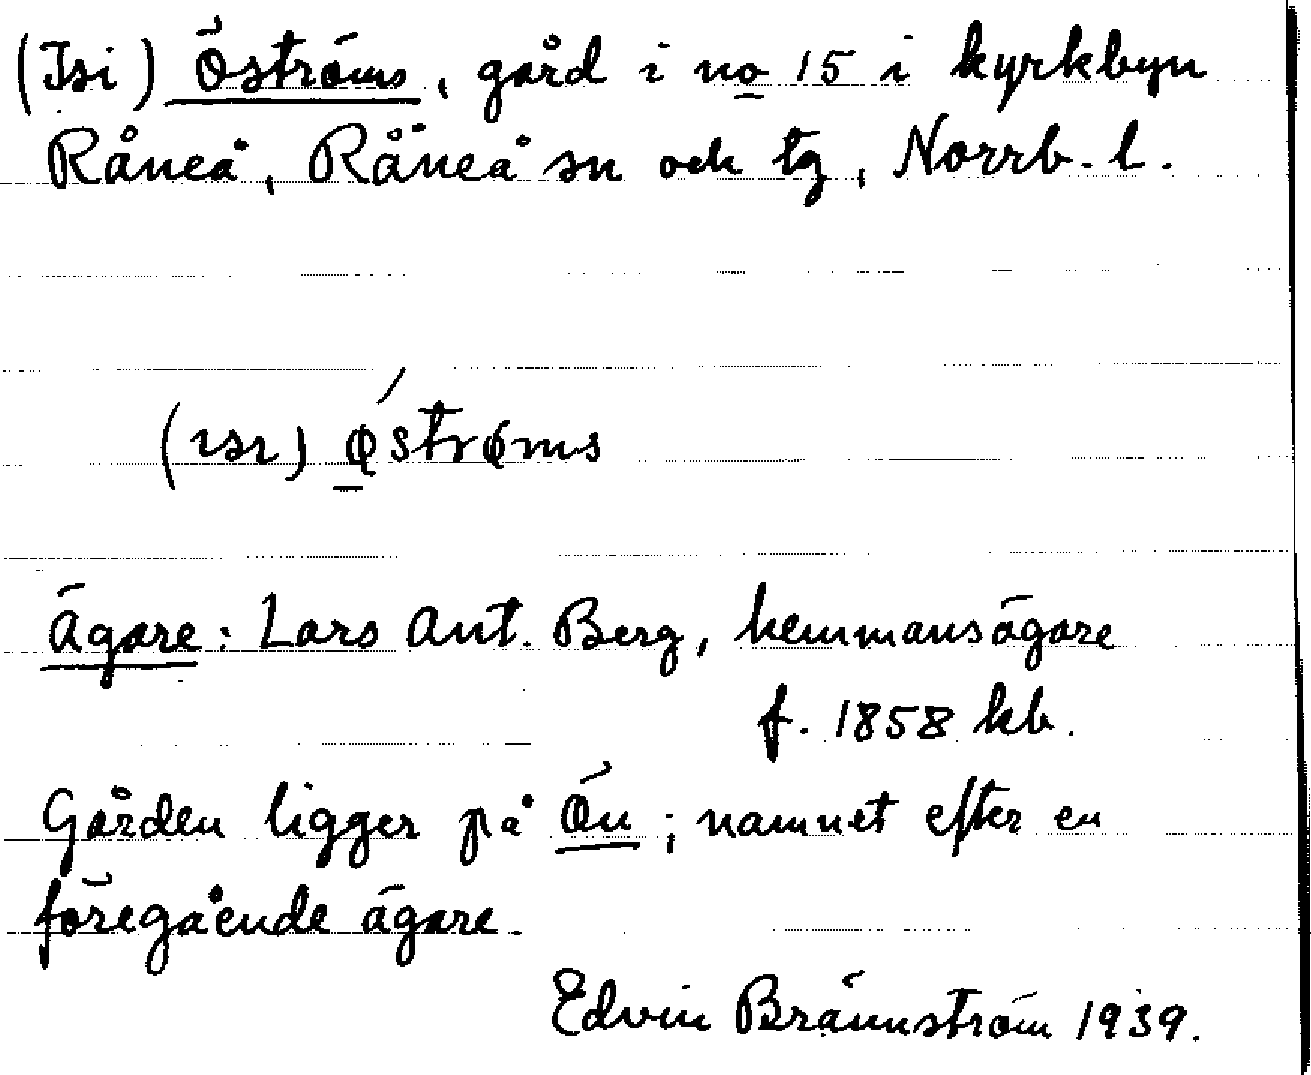 (Isi) Öströms, gård i no 15 i kyrkbyn
Råneå, Råneå sn och tg, Norrb. l.
(ısı) ǿstrøms
Ägare: Lars Ant. Berg, hemmansägare
f. 1858 kb.
Gården ligger på Ön; namnet efter en
föregående ägare.
Edvin Brännström 1939.